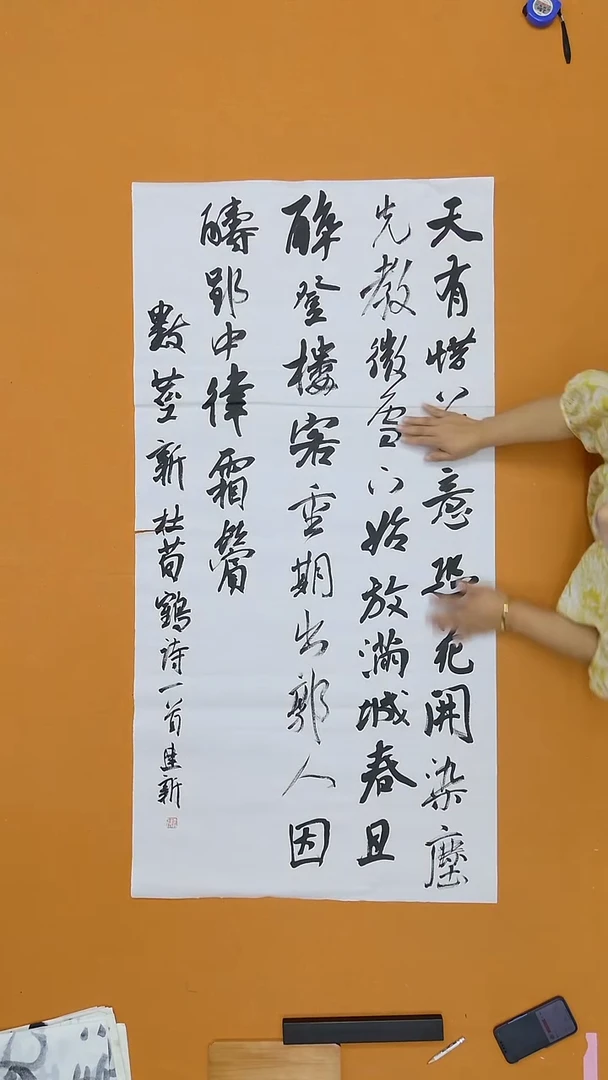 天有惜花意恐花開染塵
先教微雪下始放滿城春且
醉登樓客重期出郭人因
醻郢中律霜鬢
數莖新杜荀鶴詩一首建新